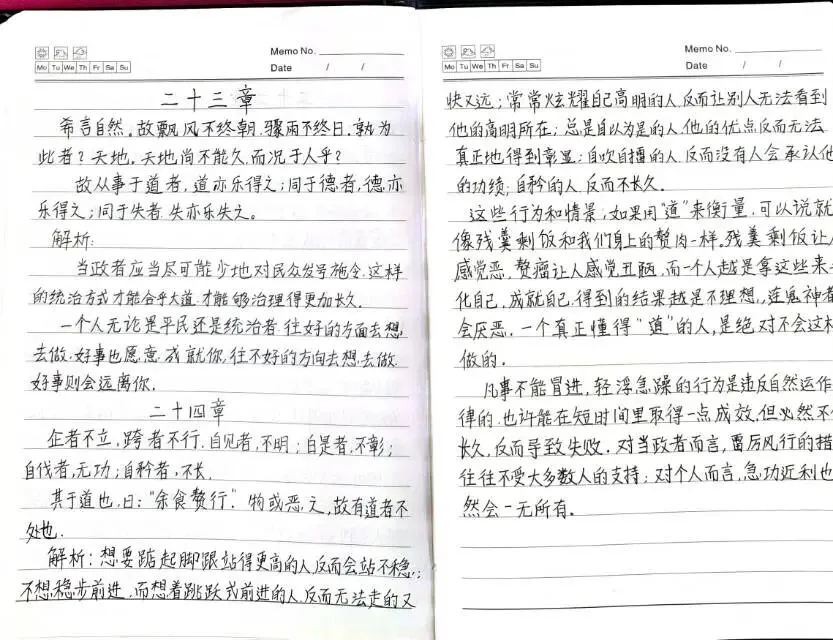 Memo No.
Mo Tu We Th Fr Sa Su
Date / /
二十三章
希言自然。故飘风不终朝,骤雨不终日。孰为
此者?天地。天地尚不能久,而况于人乎?
故从事于道者,道亦乐得之;同于德者,德亦
乐得之;同于失者,失亦乐失之。
解析:
当政者应当尽可能少地对民众发号施令,这样
的统治方式才能合乎大道,才能够治理得更加长久。
一个人无论是平民还是统治者,往好的方面去想,
去做,好事也愿意成就你,往不好的方向去想,去做,
好事则会远离你。
二十四章
企者不立,跨者不行,自见者,不明;自是者,不彰;
自伐者,无功;自矜者,不长。
其于道也,曰:“余食赘行”。物或恶之,故有道者不
处也。
解析:想要踮起脚跟站得更高的人,反而会站不稳;
不想稳步前进,而想着跳跃式前进的人,反而无法走的又
Memo No.
Mo Tu We Th Fr Sa Su
Date / /
快又远;常常炫耀自己高明的人,反而让别人无法看到
他的高明所在;总是自以为是的人,他的优点反而无法
真正地得到彰显;自吹自擂的人,反而没有人会承认他
的功绩;自矜的人,反而不长久。
这些行为和情景,如果用“道”来衡量,可以说就
像残羹剩饭和我们身上的赘肉一样。残羹剩饭让人
感觉恶,赘瘤让人感觉丑陋,而一个人越是拿这些来
化自己,成就自己,得到的结果越是不理想,连鬼神都
会厌恶。一个真正懂得“道”的人,是绝对不会这样
做的。
凡事不能冒进,轻浮急躁的行为是违反自然运作
律的,也许能在短时间里取得一点成效,但必然不
长久,反而导致失败。对当政者而言,雷厉风行的措
往往不受大多数人的支持;对个人而言,急功近利也
然会一无所有。